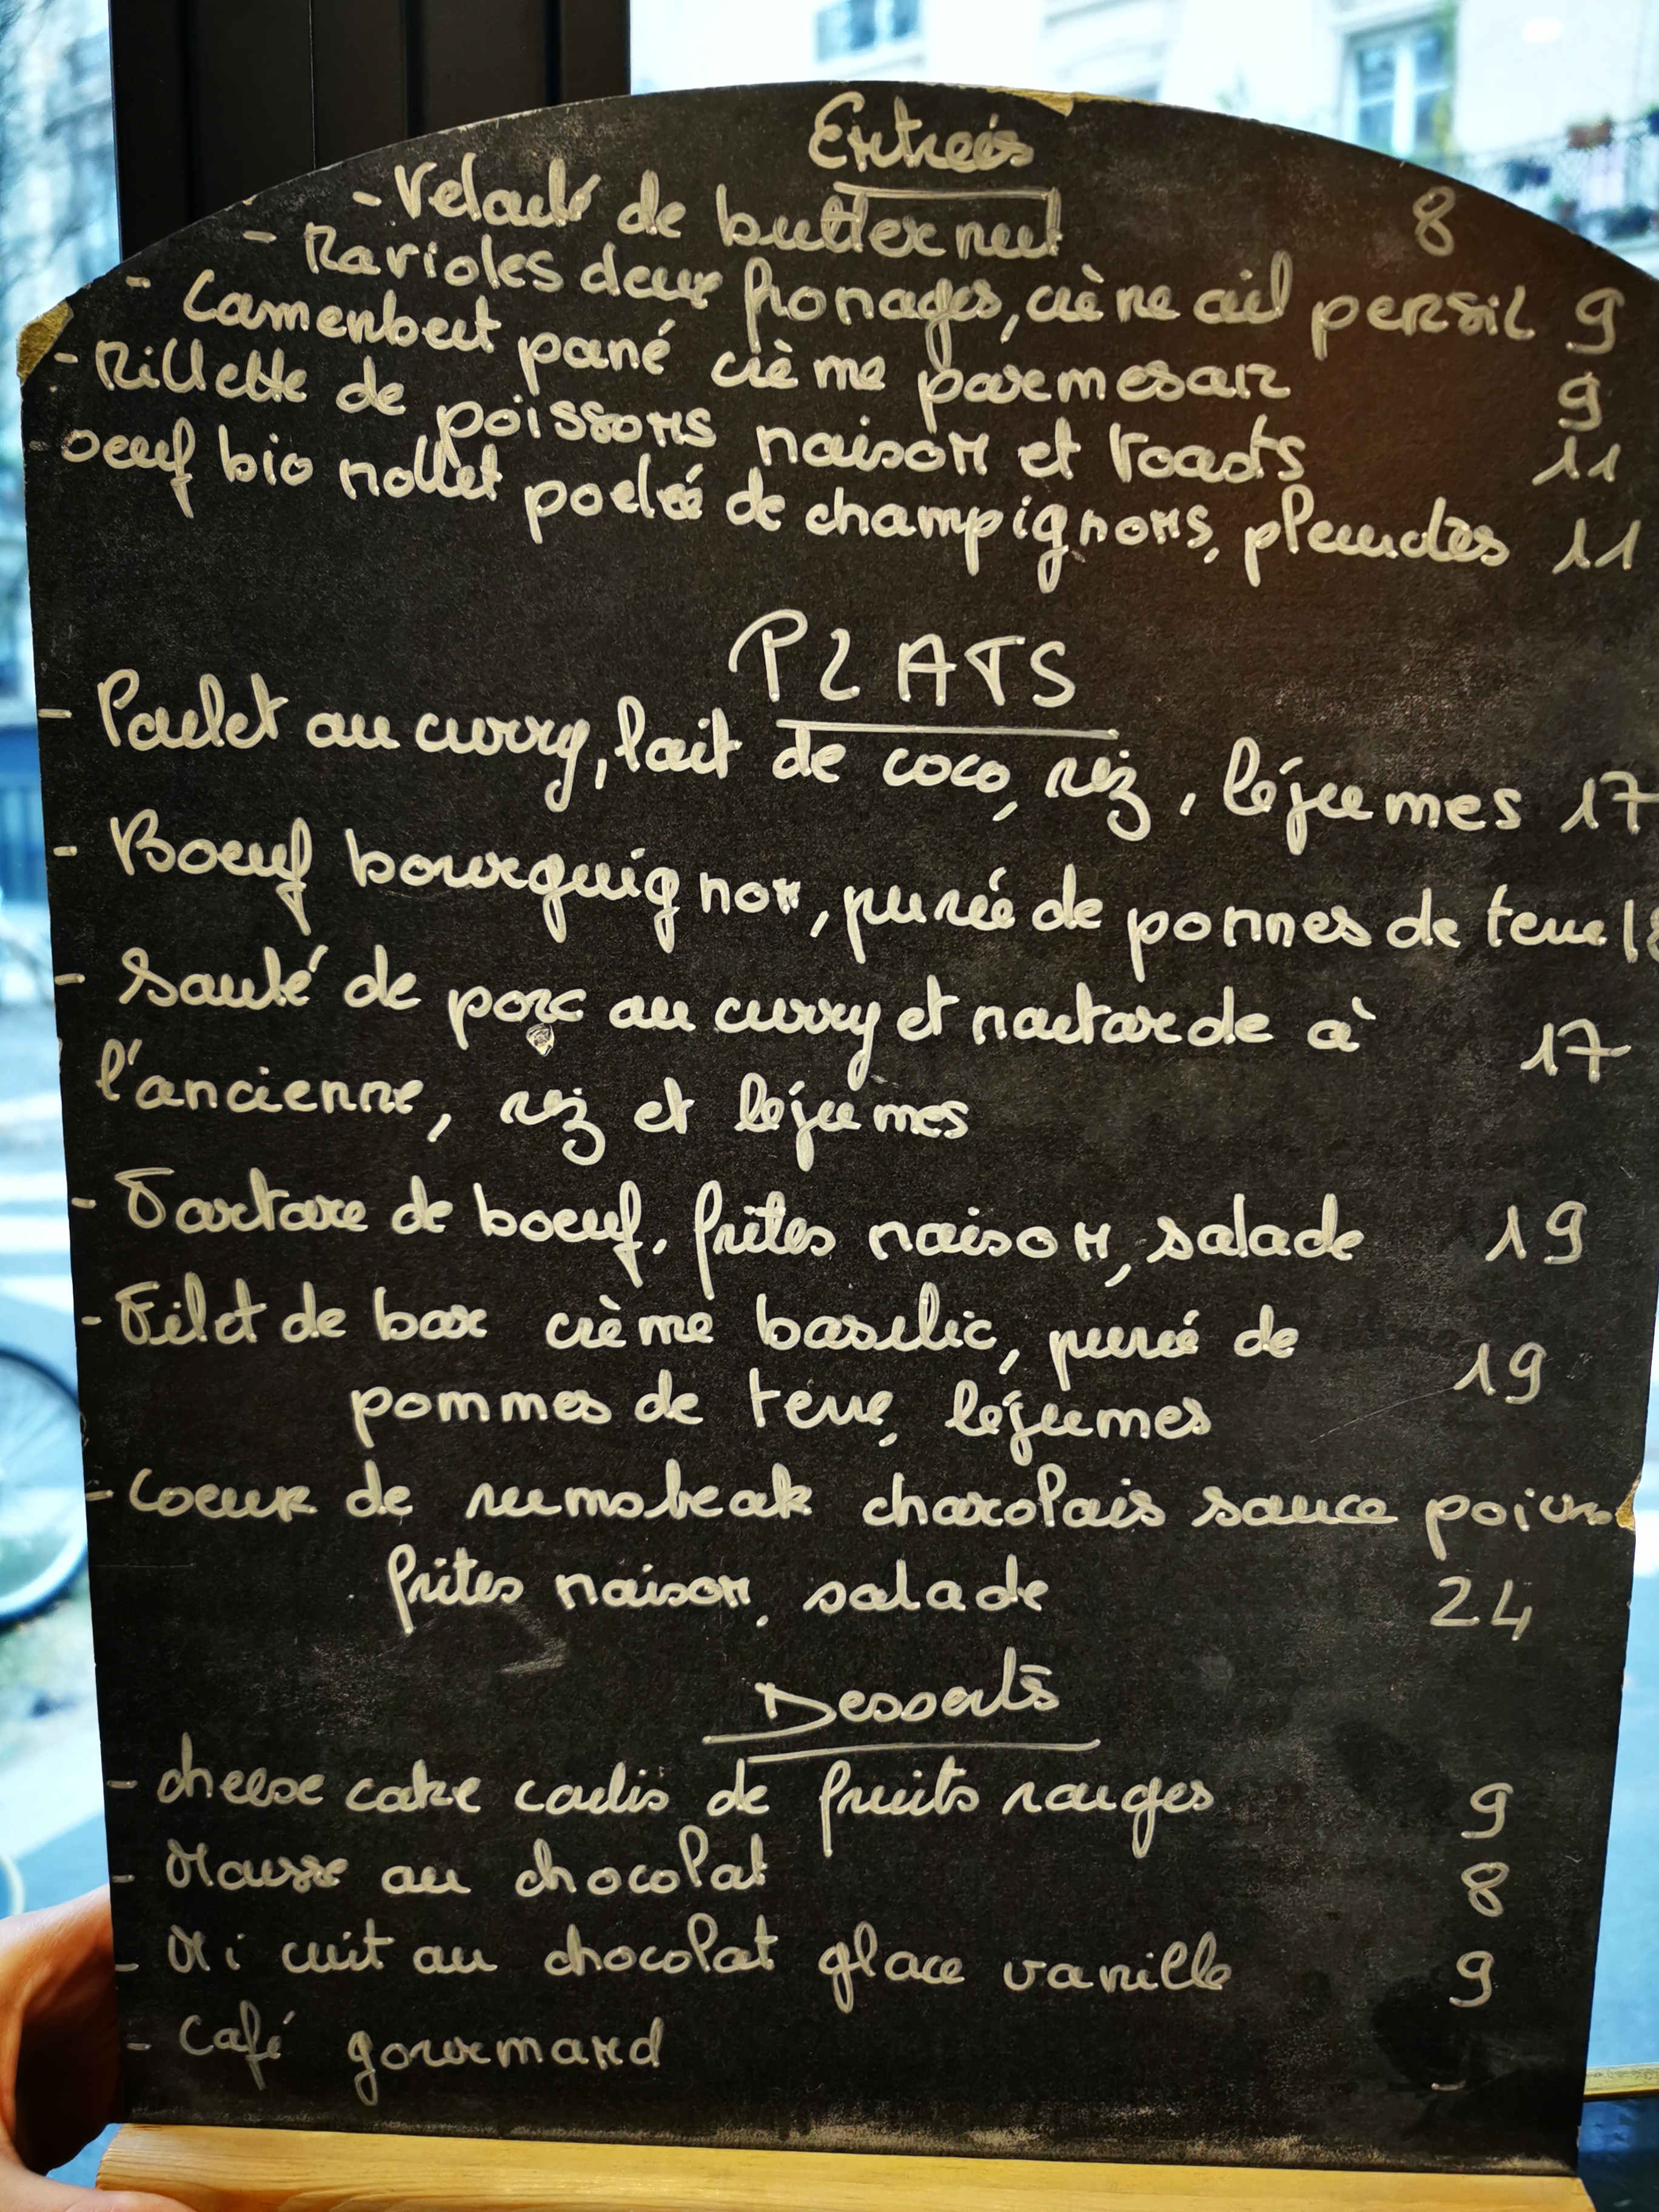 Entrées
- Velouté de butternut 8
- Ravioles deux fromages, crème ail persil 9
- Camembert pané crème parmesan 9
- Rillette de poissons maison et toasts 11
- oeuf bio mollet poelée de champignons, pleurotes 11
PLATS
- Poulet au curry, lait de coco, riz, légumes 17
- Boeuf bourguignon, purée de pommes de terre 18
- Sauté de porc au curry et moutarde à 17
l'ancienne, riz et légumes
- Tartare de boeuf, frites maison, salade 19
- Filet de bar crème basilic, purée de 19
pommes de terre, légumes
- Coeur de rumsteak charolais sauce poivre
frites maison, salade 24
Desserts
- cheese cake coulis de fruits rouges 9
- Mousse au chocolat 8
- Mi cuit au chocolat glace vanille 9
- Café gourmand